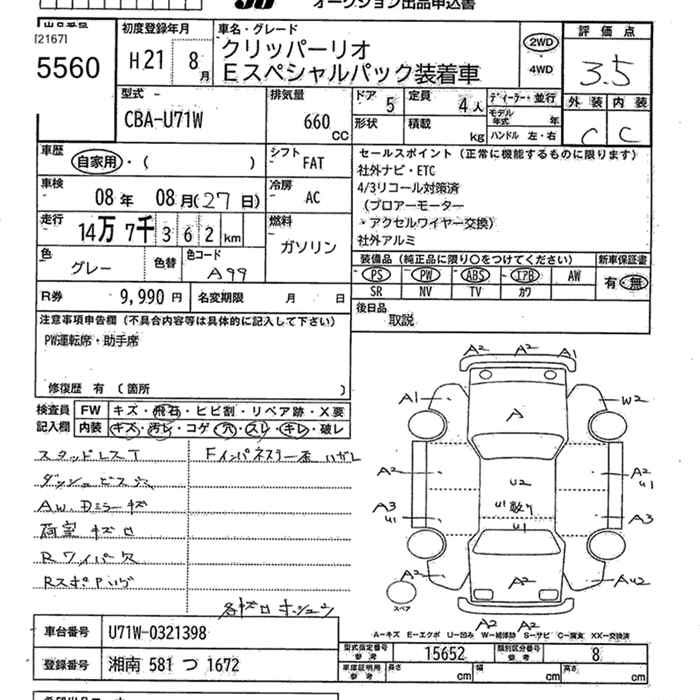 オークション出品申込書
出品番号
[2167]
5560
初度登録年月
H21 8月
車名・グレード
クリッパーリオ
Eスペシャルパック装着車
2WD
・
4WD
評価点
3.5
外装 内装
C C
型式
CBA-U71W
排気量
660
CC
ドア
5
定員
4人
形状
積載
kg
ディーラー・並行
モデル年式 年
ハンドル 左・右
車歴
自家用・( )
シフト
FAT
車検
08年 08月(27日)
冷房
AC
走行
14万 7千 362 km
燃料
ガソリン
色
グレー
色替
色コード
A99
R券
9,990円
名変期限 月 日
セールスポイント(正常に機能するものに限ります)
社外ナビ・ETC
4/3リコール対策済
(ブロアーモーター
・アクセルワイヤー交換)
社外アルミ
装備品(純正品に限り○をつけてください)
新車保証書
PS PW ABS エアB AW
有・無
SR NV TV カワ
後日品
取説
注意事項申告欄(不具合内容等は具体的に記入して下さい)
PW運転席・助手席
修復歴 有(箇所 )
検査員
記入欄
FW キズ・飛石・ヒビ割・リペア跡・X要
内装 キズ・汚レ・コゲ・穴・スレ・キレ・破レ
スタッドレスT
Fインパネスリ一歪 ハガレ
ダッシュ ビス穴
AW、Dミラーキズ
荷室 キズ
Rワイパー欠
A2 A2 A1
A1 A W2
A2 U2 A2
U1
A3
U1
U1
U1
A3
A2 A2 AU2
A2 A2
スペア
A-キズ E-エクボ U-凹み W-補修跡 S-サビ C-腐食 XX-交換済
車台番号
U71W-0321398
登録番号
湘南 581 つ 1672
型式指定番号
参考
15652
類別区分番号
参考
8
車庫証明用
参考
長さ cm 幅 cm 高さ cm